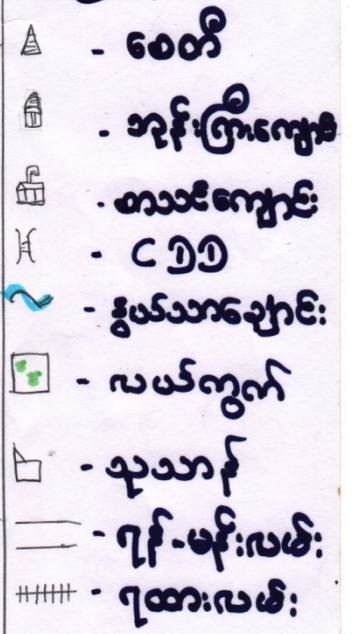 - စေတီ
- ဘုန်းကြီးကျောင်း
- စာသင်ကျောင်း
- CDD
- နွယ်သာချောင်း
- လယ်ကွက်
- သုသာန်
- ရန်-မန်းလမ်း
- ရထားလမ်း